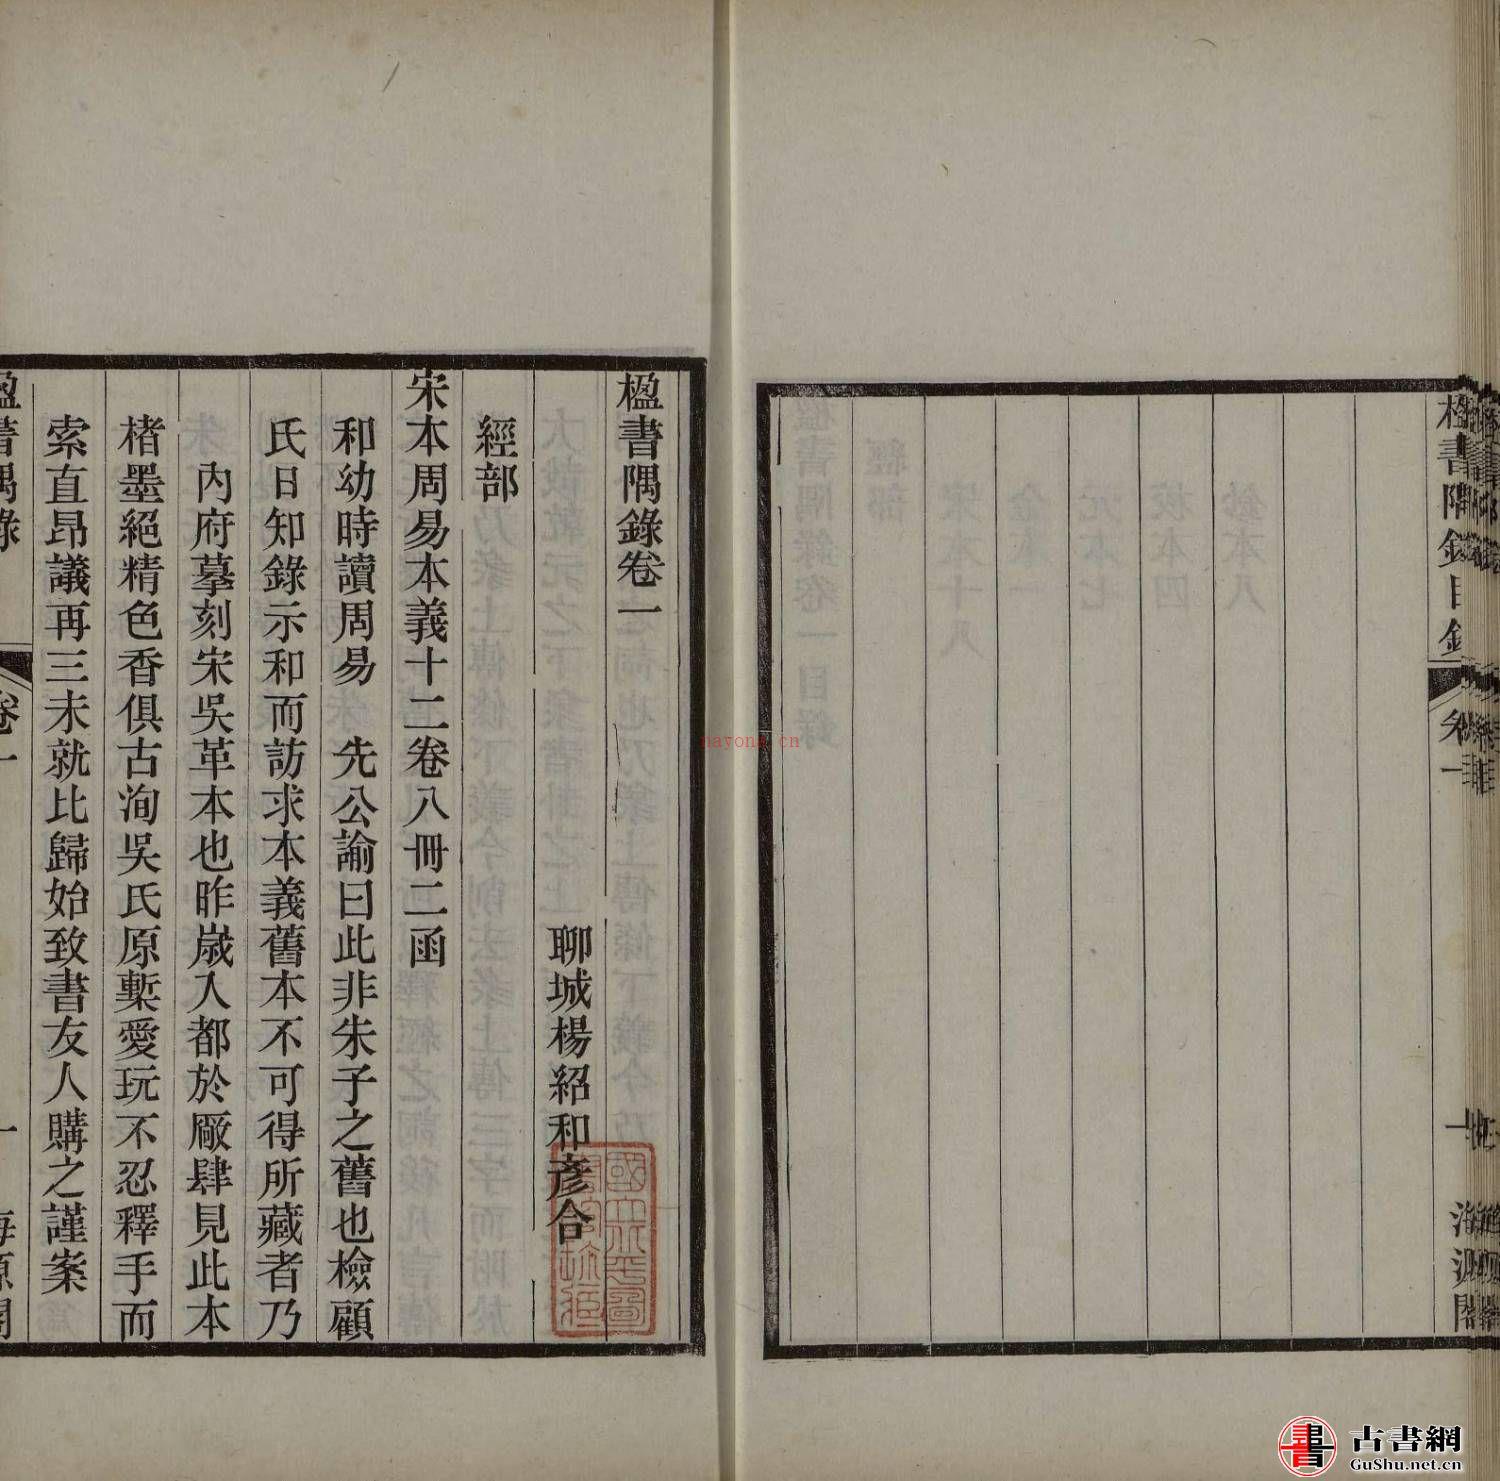 楹書隅錄目錄
卷一
海源閣
楹書隅錄卷一
聊城楊紹和彥合
經部
宋本周易本義十二卷八冊二函
和幼時讀周易　先公諭曰此非朱子之舊也檢顧
氏日知錄示和而訪求本義舊本不可得所藏者乃
內府摹刻宋吳革本也昨歲入都於廠肆見此本
楮墨絕精色香俱古洵吳氏原槧愛玩不忍釋手而
索直昂議再三未就比歸始致書友人購之謹案
楹書隅錄
卷一
一
海源閣
nayona.cn
古書網
GuShu.net.cn